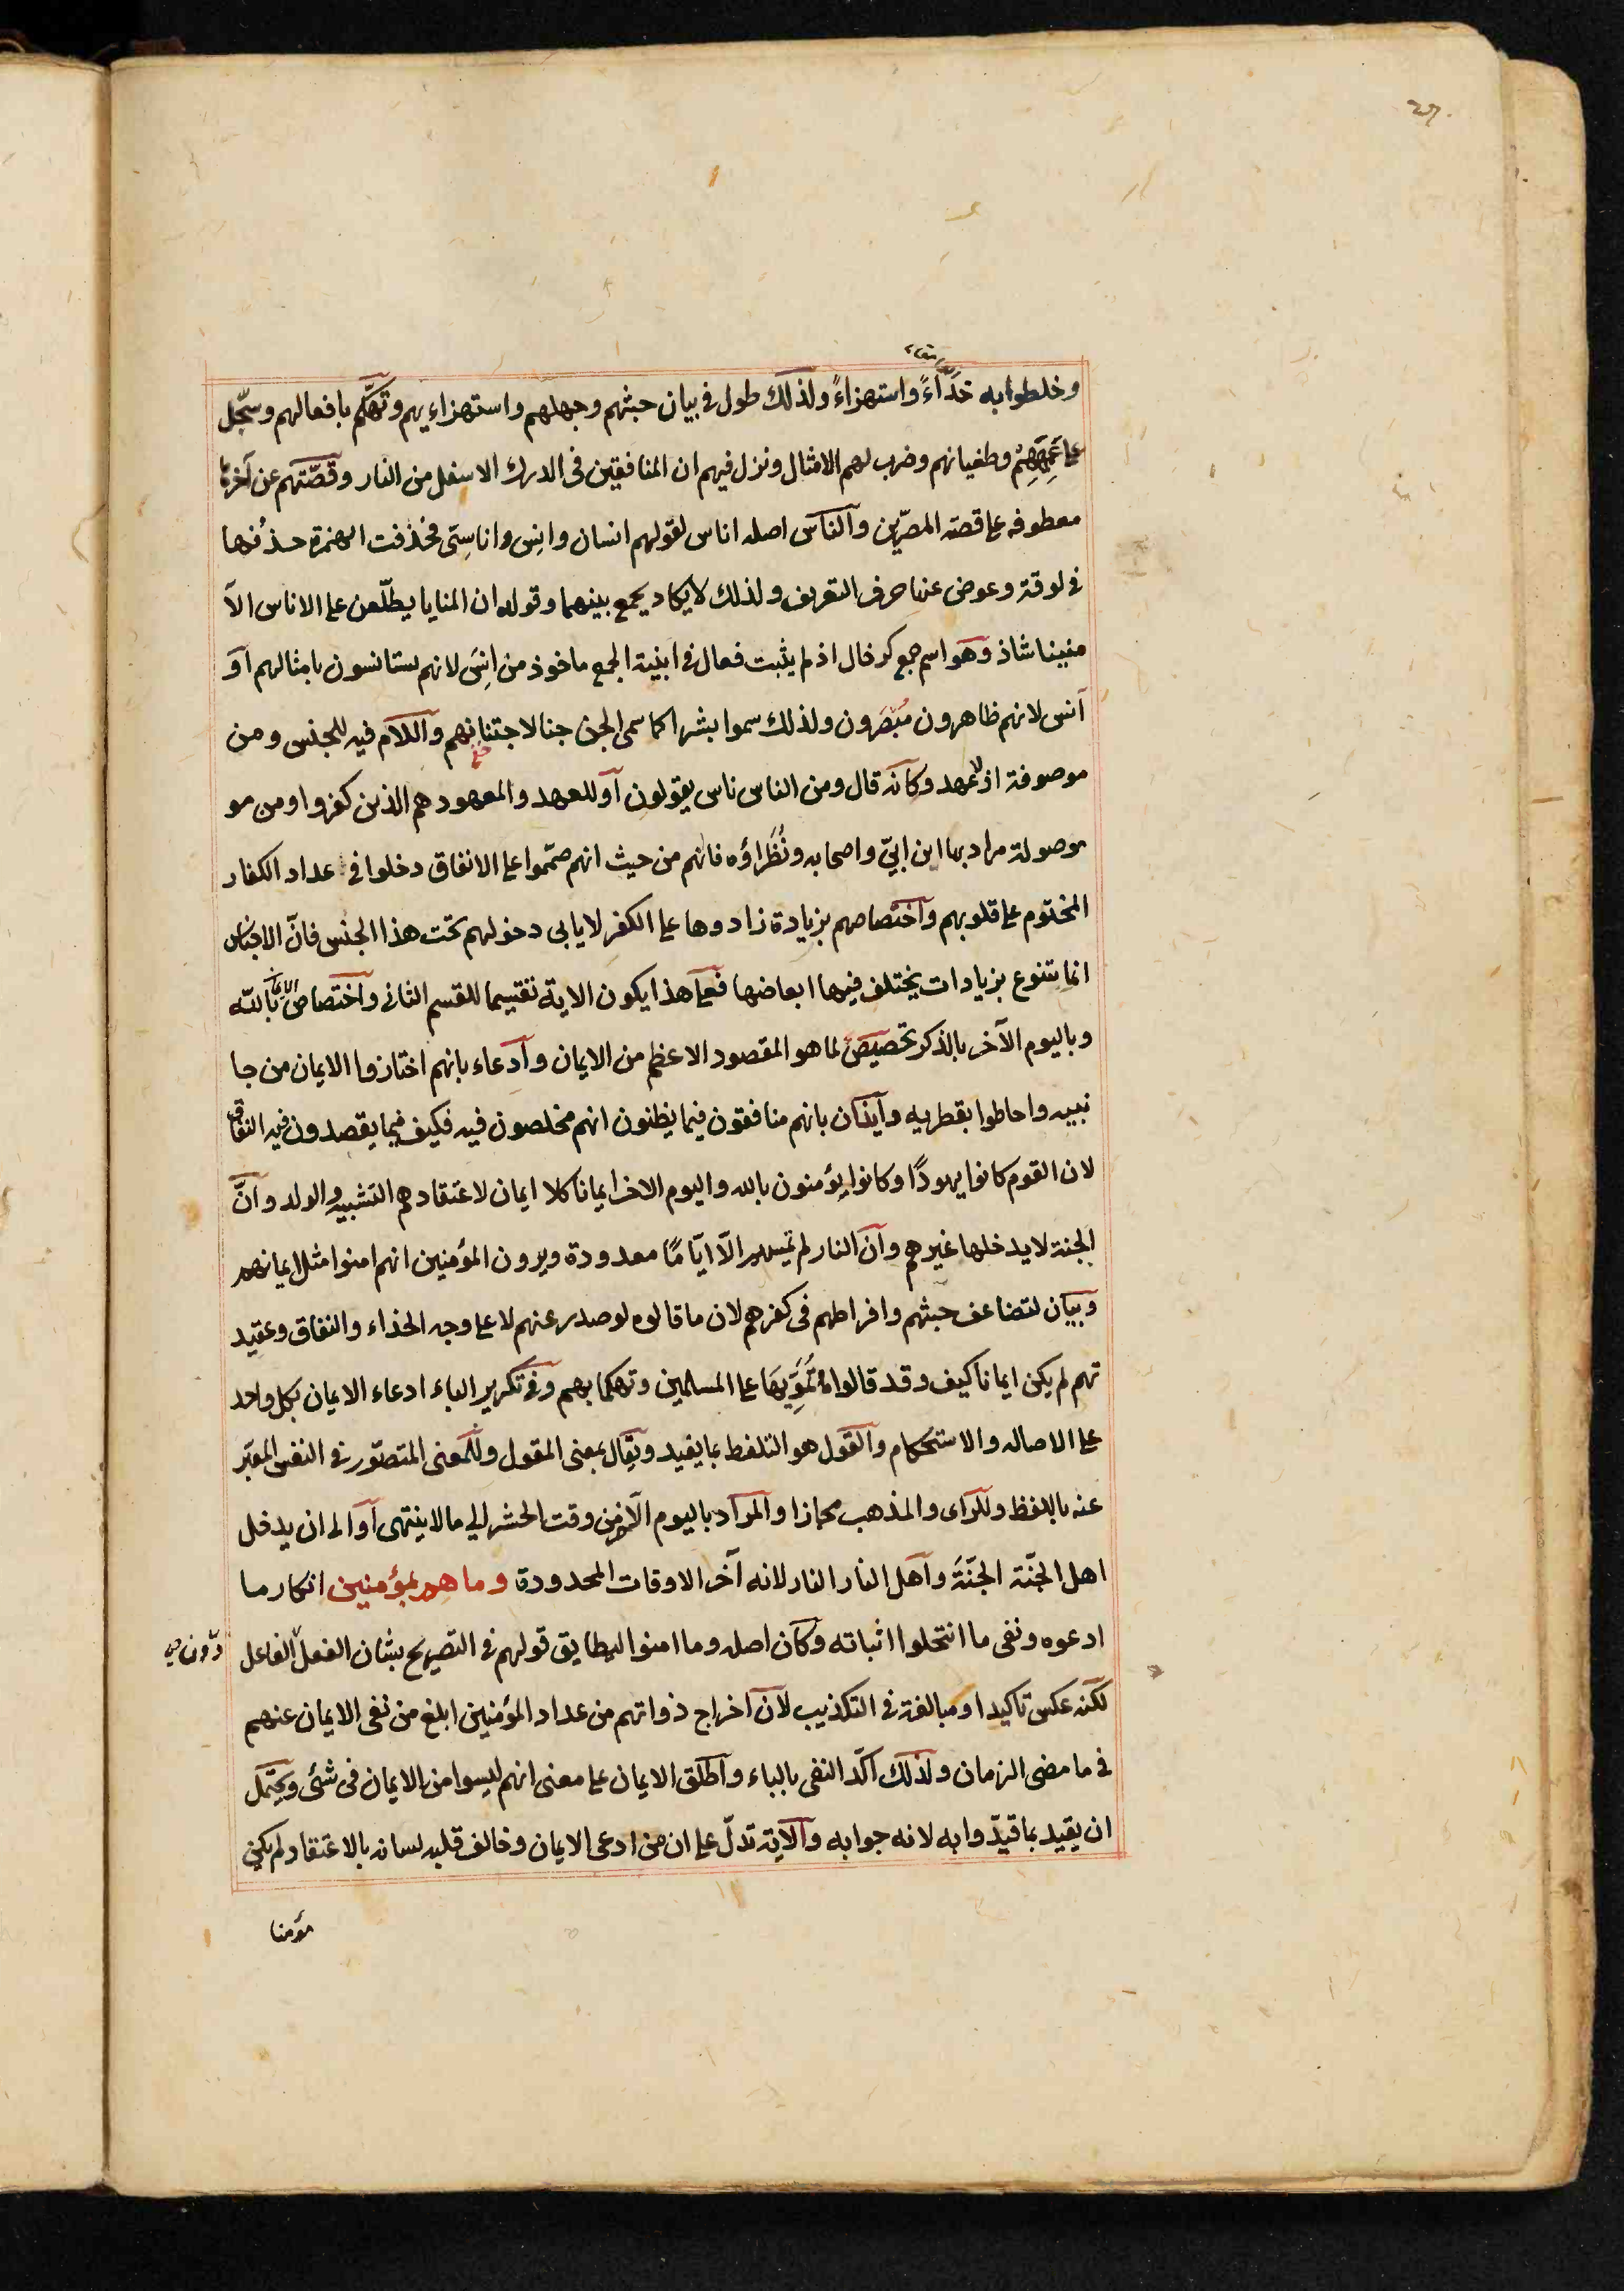 وخلطوا به خدّاءً واستهزاءً ولذلك طول في بيان خبثهم وجهلهم واستهزاء بهم وتهكّم بافعالهم وسجّل
على عَمَهِهِمْ وطغيانهم وضرب لهم الامثال ونزل فيهم ان المنافقين فى الدرك الاسفل من النار وقصّتهم عن آخرها
معطوفه على قصة المصرّين والناس اصله اناس لقولهم انسان وانِس واناسىّ فحُذفت الهمزة حذْفها
فى لوقة وعوض عنها حرف التعريف ولذلك لا يكاد يجمع بينهما وقوله ان المنايا يطلّعن على الاناس الآ
منينا شاذ وهو اسم جمع كرخال اذ لم يثبت فعال فى ابنية الجمع ماخوذ من انِسَ لانهم يستانسون بامثالهم او
آنس لانهم ظاهرون مُبْصَرون ولذلك سموا بشرا كما سمى الجن جنا لاجتنانهم واللام فيه للجنس ومن
موصوفة اذ لا عهد وكانه قال ومن الناس ناس يقولون او للعهد والمعهود هم الذين كفروا ومن مو
موصولة مراد بها ابن ابىّ واصحابه ونُظَراؤه فانهم من حيث انهم صمّموا على الانفاق دخلوا فى عداد الكفار
المختوم على قلوبهم واختصاصهم بزيادة زادوها على الكفر لا يابى دخولهم تحت هذا الجنس فانّ الاجناس
انما تتنوع بزيادات يختلف فيها ابعاضها فعلى هذا يكون الاية تقسيما للقسم الثانى واختصاص الايمان بالله
وباليوم الآخر بالذكر تخصيص لما هو المقصود الاعظم من الايمان وادعاء بانهم اختازوا الايمان من جا
نبيه واحاطوا بقطريه وايذان بانهم منافقون فيما يظنون انهم مخلصون فيه فكيف فيما يقصدون فيه النفاق
لان القوم كانوا يهودًا وكانوا يؤمنون بالله واليوم الاخر ايمانا كلا ايمان لاعتقادهم التشبيه والولد وانّ
الجنة لا يدخلها غيرهم وانّ النار لم تمسهم الّا ايّامًا معدودة ويرون المؤمنين انهم امنوا مثل ايمانهم
وبيان لتضاعف خبثهم وافراطهم فى كفرهم لان ما قالوه لو صدر عنهم لا على وجه الخداء والنفاق وعقيد
تهم لم يكن ايمانا كيف وقد قالوه تَمْوِيهَا على المسلمين وتهكما بهم وفى تكرير الباء ادعاء الايمان بكل واحد
على الاصاله والاستحكام والقول هو التلفظ بما يفيد ويقال بمعنى المقول وللمعنى المتصوّر فى النفس المعبّر
عنه باللفظ وللراى والمذهب مجازا والمراد باليوم الآخر من وقت الحشر الى ما لا ينتهى او الى ان يدخل
اهل الجنّة الجنَّة واهل النار النار لانه آخر الاوقات المحدودة وما هم بمؤمنين انكار ما
ادعوه ونفى ما انتحلوا اثباته وكان اصله وما امنوا ليطابق قولهم فى التصريح بشان الفعل الفاعل
دون
لكنه عكس تاكيدا ومبالغة فى التكذيب لان اخراج ذواتهم من عداد المؤمنين ابلغ من نفى الايمان عنهم
فى ما مضى الزمان ولذلك اكّد النفى بالباء واطلق الايمان على معنى انهم ليسوا من الايمان فى شئى ويحتمل
ان يقيد بما قيدّوا به لانه جوابه والاية تدلّ على ان من ادعى الايمان وخالف قلبه لسانه بالاعتقاد لم يكن
مؤمنا